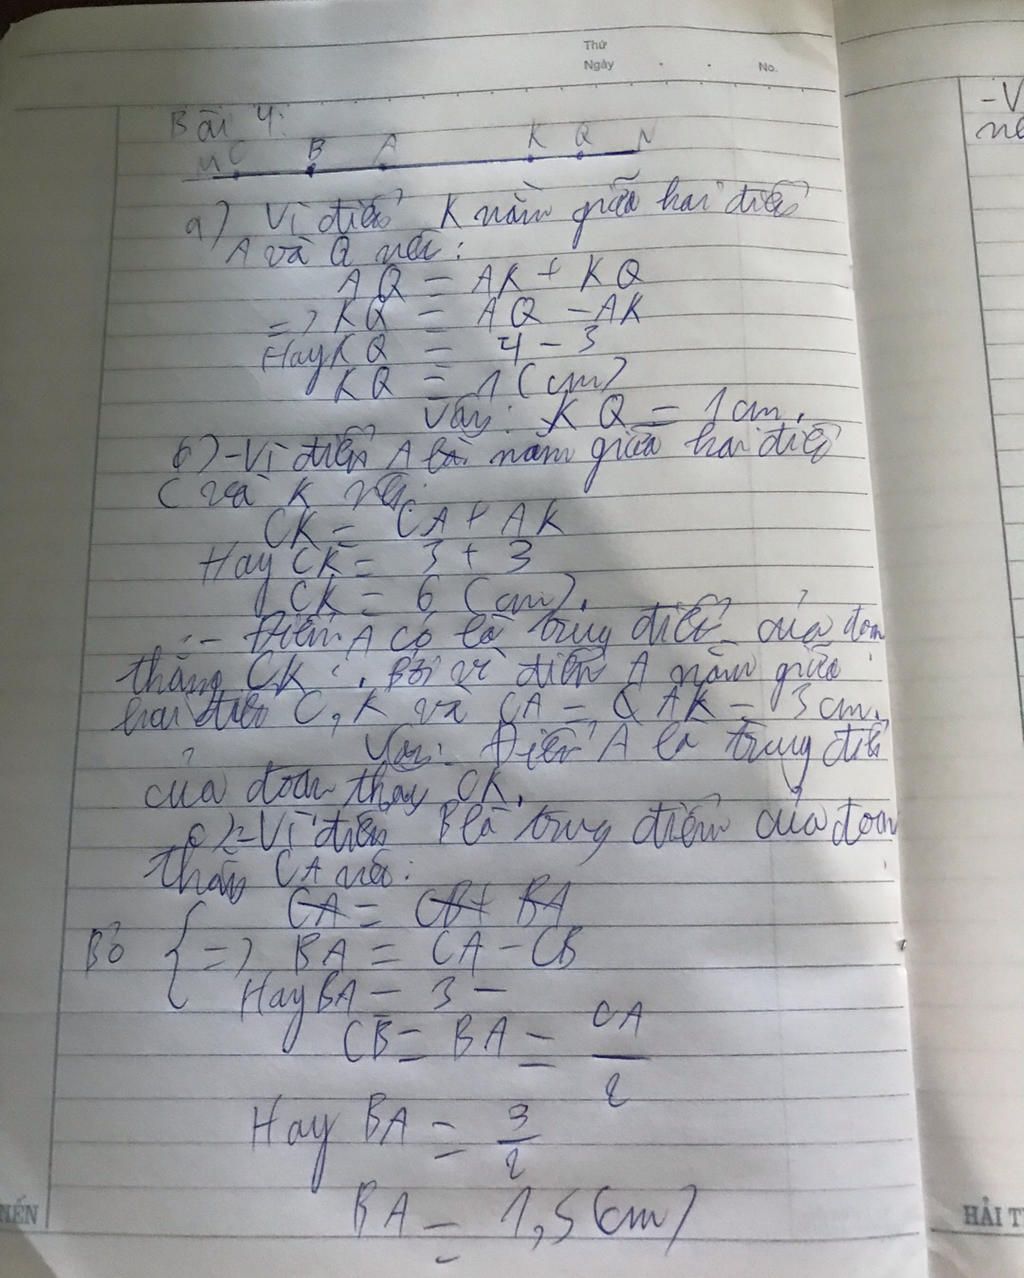 Thứ
Ngày
No.
Bài 4:
M C B A K Q N
a) Vì điểm K nằm giữa hai điểm
A và Q nên:
AQ = AK + KQ
=> KQ = AQ - AK
Hay KQ = 4 - 3
KQ = 1 (cm)
Vậy: KQ = 1cm.
b) - Vì điểm A nằm giữa hai điểm
C và K nên:
CK = CA + AK
Hay CK = 3 + 3
CK = 6 (cm).
- Điểm A có là trung điểm của đoạn
thẳng CK. Bởi vì điểm A nằm giữa
hai điểm C, K và CA = AK = 3cm.
Vậy: Điểm A là trung điểm
của đoạn thẳng CK.
c) - Vì điểm B là trung điểm của đoạn
thẳng CA nên:
CA = CB + BA
Bỏ { => BA = CA - CB
Hay BA = 3 -
CB = BA = CA / 2
Hay BA = 3 / 2
BA = 1,5 (cm)
- V
nê
IẾN
HẢI T